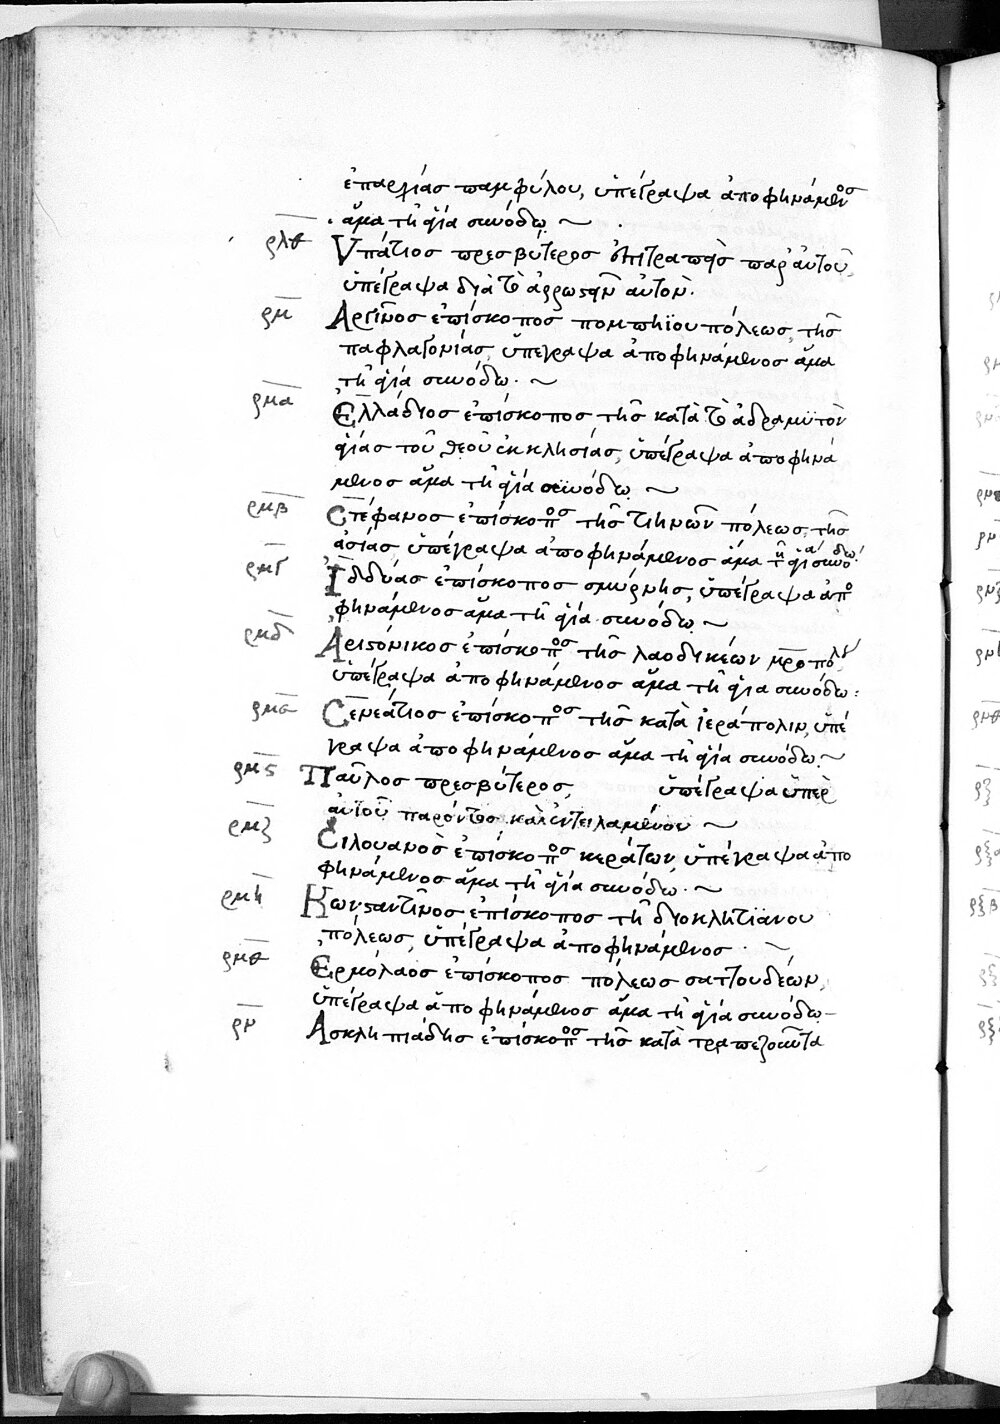 ἐπαρχίας παμφύλου, ὑπέγραψα ἀποφηνάμενος
ἅμα τῆ ἁγία συνόδω ~
ρλθ Ὑπάτιος πρεσβύτερος ἐπιτραπεὶς παρ' αὐτοῦ,
ὑπέγραψα διὰ τὸ ἀρρωστεῖν αὐτόν.
ρμ Ἀργῖνος ἐπίσκοπος πομπηϊουπόλεως, τῆς
παφλαγονίας, ὑπέγραψα ἀποφηνάμενος ἅμα
τῆ ἁγία συνόδω. ~
ρμα Ἑλλάδιος ἐπίσκοπος τῆς κατὰ τὸ ἀδραμϋτὸν
ἁγίας τοῦ θεοῦ ἐκκλησίας, ὑπέγραψα ἀποφηνά
μενος ἅμα τῆ ἁγία συνόδω ~
ρμβ Στέφανος ἐπίσκοπος τῆς τιηνῶν πόλεως, τῆς
ἀσίας, ὑπέγραψα ἀποφηνάμενος ἅμα τῆ ἁγία συνόδω.
ρμγ Ἰδδύας ἐπίσκοπος σμύρνης, ὑπέγραψα ἀπο
φηνάμενος ἅμα τῆ ἁγία συνόδω ~
ρμδ Ἀριστόνικος ἐπίσκοπος τῆς λαοδικέων μητροπόλεως
ὑπέγραψα ἀποφηνάμενος ἅμα τῆ ἁγία συνόδω:
ρμε Σενεάτιος ἐπίσκοπος τῆς κατὰ ἱεράπολιν, ὑπέ
γραψα ἀποφηνάμενος ἅμα τῆ ἁγία συνόδω. ~
ρμς Παῦλος πρεσβύτερος, ὑπέγραψα ὑπὲρ
αὐτοῦ παρόντος καὶ ἐντειλαμένου ~
ρμζ Σιλουανὸς ἐπίσκοπος κεράτων, ὑπέγραψα ἀπο
φηνάμενος ἅμα τῆ ἁγία συνόδω. ~
ρμη Κωνσταντῖνος ἐπίσκοπος τῆ διοκλητϊάνου
πόλεως, ὑπέγραψα ἀποφηνάμενος. ~
ρμθ Ἑρμόλαος ἐπίσκοπος πόλεως σαττουδέων,
ὑπέγραψα ἀποφηνάμενος ἅμα τῆ ἁγία συνόδω –
ρν Ἀσκληπιάδης ἐπίσκοπος τῆς κατὰ τραπεζοῦντα